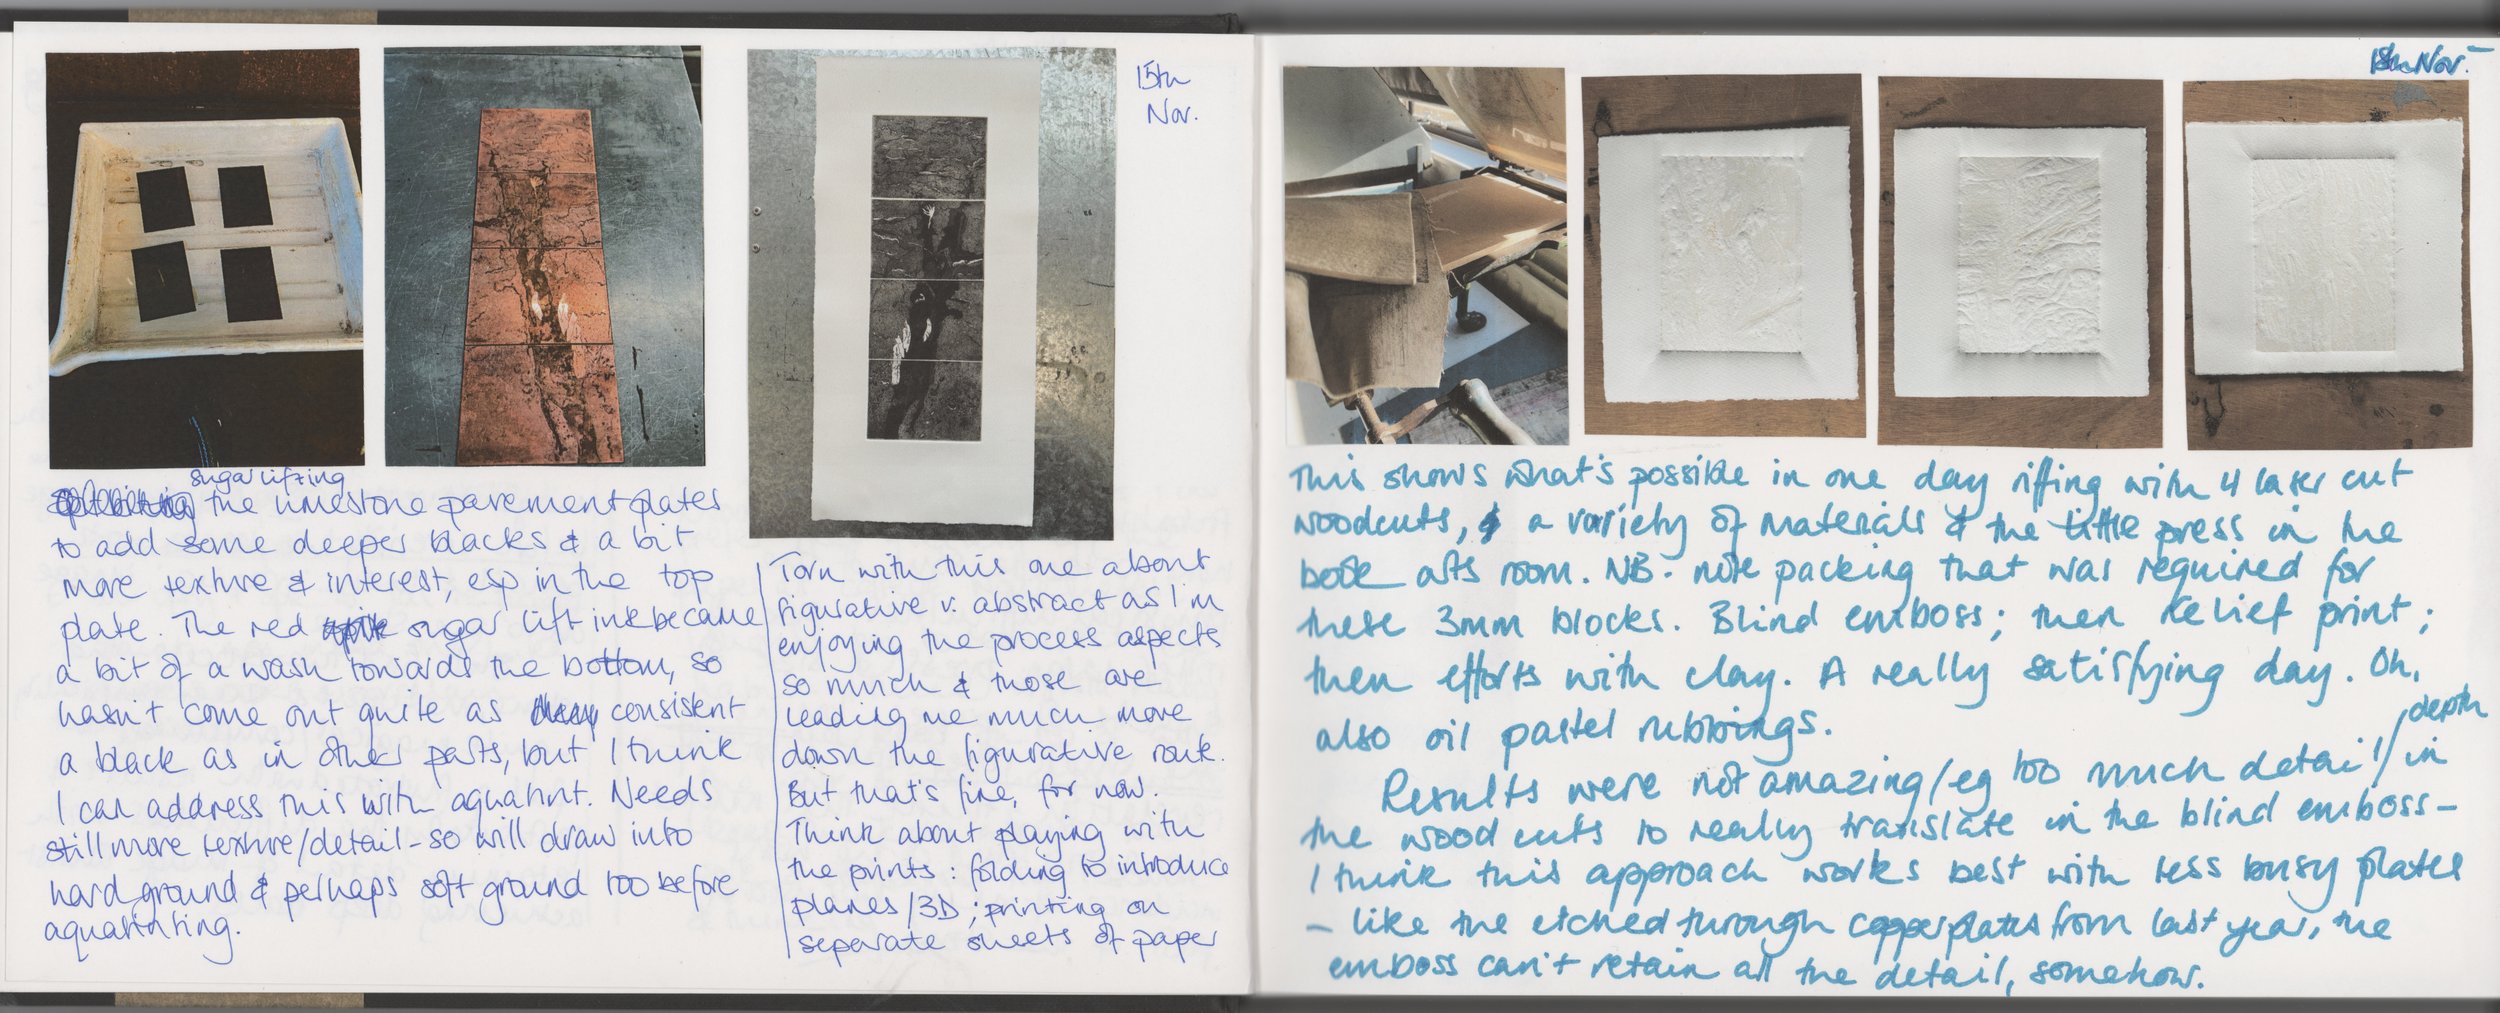 15th
Nov.
sugar lifting
the limestone pavement plates
to add some deeper blacks & a bit
more texture & interest, esp in the top
plate. The red sugar lift ink became
a bit of a wash towards the bottom, so
hasn't come out quite as consistent
a black as in other parts, but I think
I can address this with aquatint. Needs
still more texture/detail - so will draw into
hard ground & perhaps soft ground too before
aquatinting.
Torn with this one about
figurative v. abstract as I'm
enjoying the process aspects
so much & those are
leading me much more
down the figurative route.
But that's fine, for now.
Think about playing with
the prints: folding to introduce
planes/3D; printing on
separate sheets of paper
Nov.
This shows what's possible in one day riffing with 4 laser cut
woodcuts, & a variety of materials & the little press in the
book arts room. NB - note packing that was required for
these 3mm blocks. Blind emboss; then relief print;
then efforts with clay. A really satisfying day. Oh,
also oil pastel rubbings.
Results were not amazing/eg too much detail/depth in
the woodcuts to really translate in the blind emboss -
I think this approach works best with less busy plates
- like the etched through copper plates from last year, the
emboss can't retain all the detail, somehow.